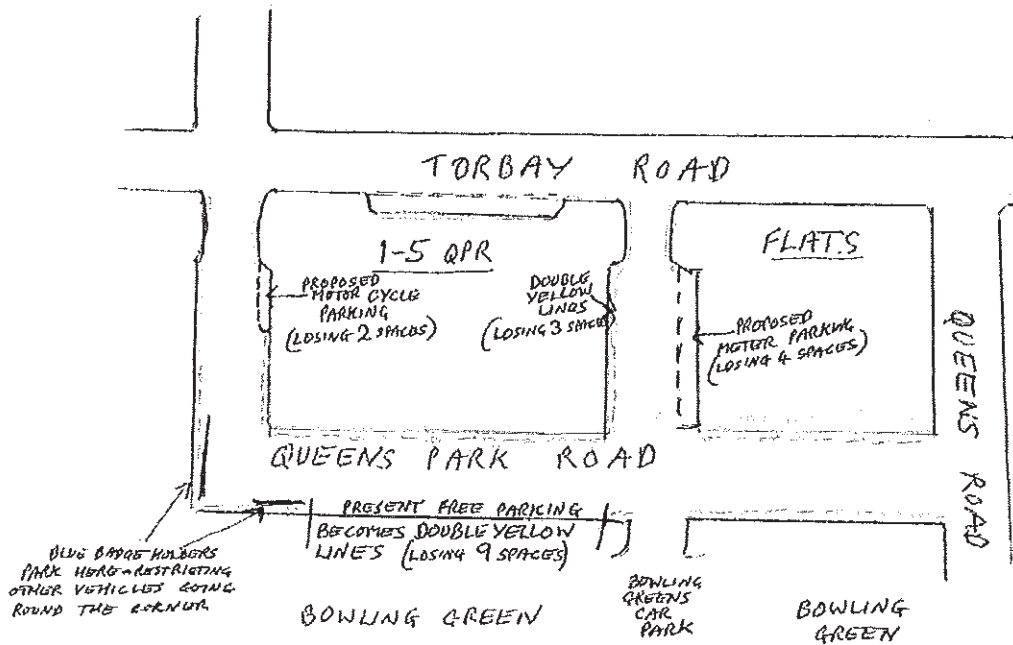 TORBAY ROAD
1-5 QPR
FLATS
PROPOSED
MOTOR CYCLE
PARKING
(LOSING 2 SPACES)
DOUBLE
YELLOW
LINES
(LOSING 3 SPACES)
PROPOSED
METER PARKING
(LOSING 4 SPACES)
QUEENS ROAD
QUEENS PARK ROAD
PRESENT FREE PARKING
BECOMES DOUBLE YELLOW
LINES (LOSING 9 SPACES)
BLUE BADGE HOLDERS
PARK HERE - RESTRICTING
OTHER VEHICLES GOING
ROUND THE CORNER
BOWLING GREEN
BOWLING
GREENS
CAR
PARK
BOWLING
GREEN